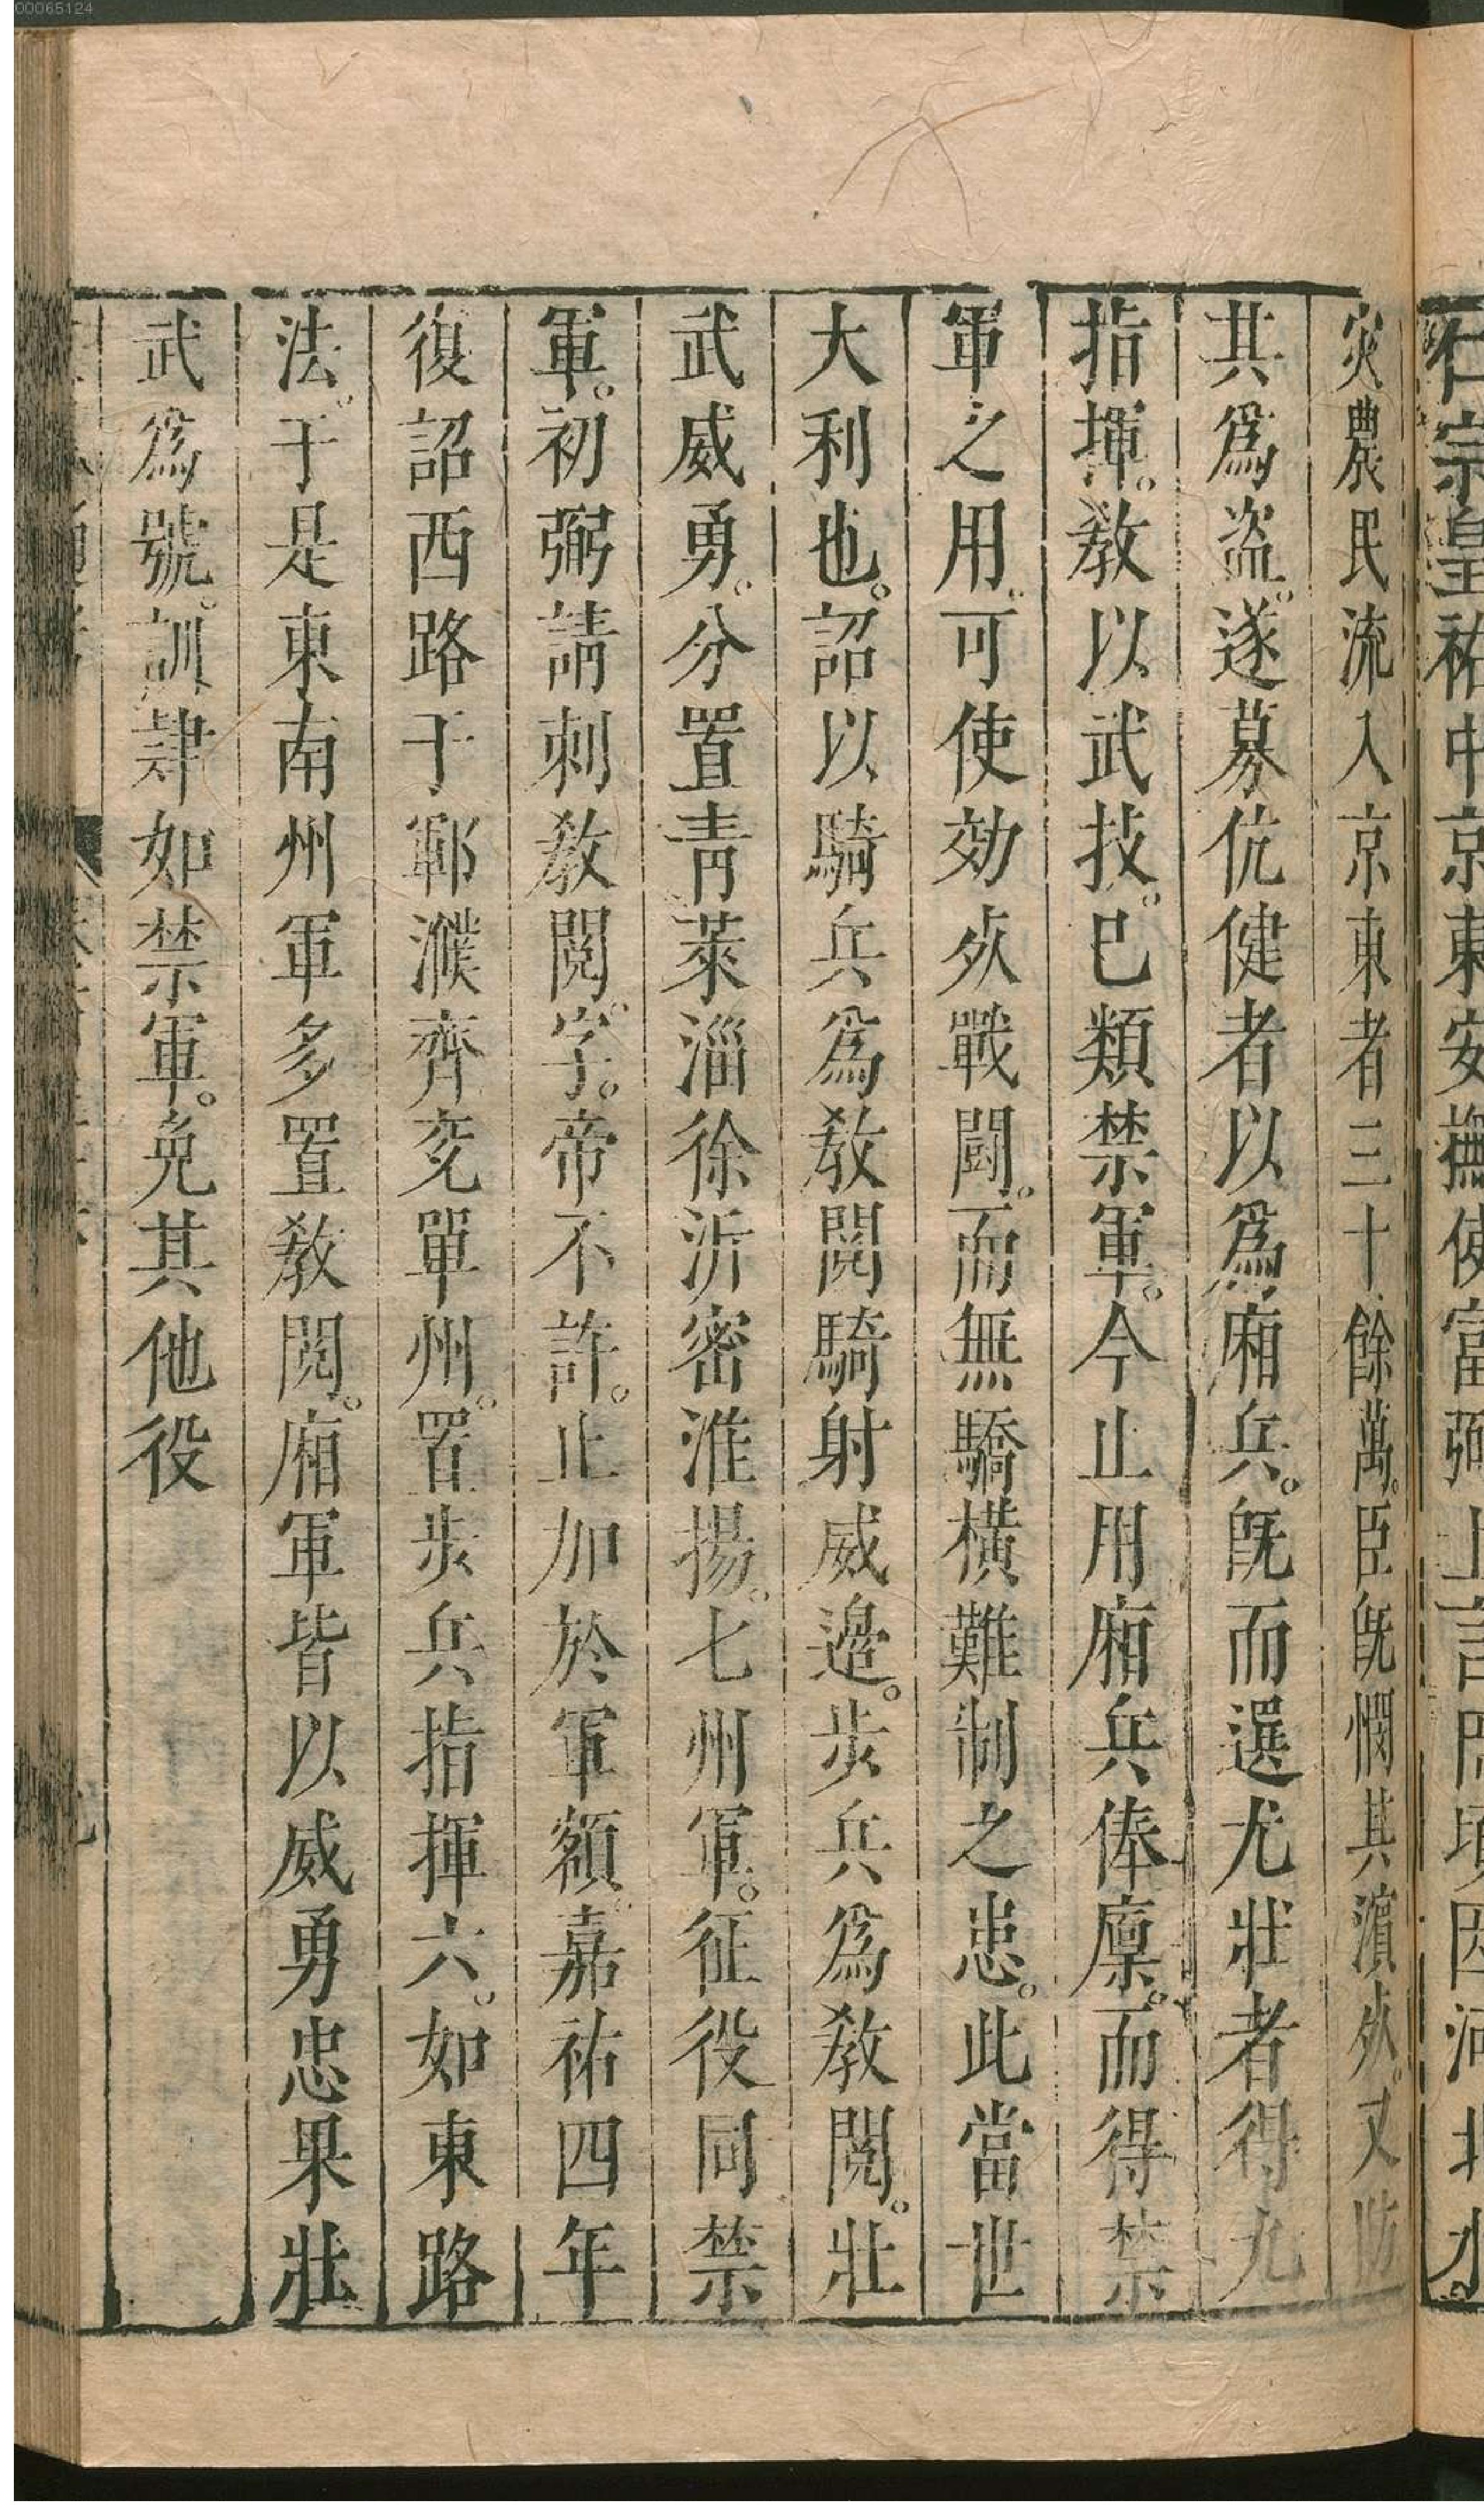 00065124
仁宗皇祐中京東安撫使富弼上言臣頃因河北水
災農民流入京東者三十餘萬。臣旣憫其濵死。又防
其爲盗。遂募伉健者以爲廂兵。旣而選尤壯者得九
指揮。敎以武技。巳類禁軍。今止用廂兵俸廪。而得禁
軍之用。可使効死戰闘。而無驕横難制之患。此當世
大利也。詔以騎兵爲敎閱騎射威邉。步兵爲敎閱。壯
武威勇。分置青萊淄徐沂密淮揚。七州軍。征役同禁
軍。初弼請刺敎閱。字。帝不許。止加於軍額。嘉祐四年
復詔西路于鄆濮齊兖單州。置步兵指揮六。如東路
法。于是東南州軍多置敎閱。廂軍皆以威勇忠果壯
武爲號。訓肄如禁軍。免其他役